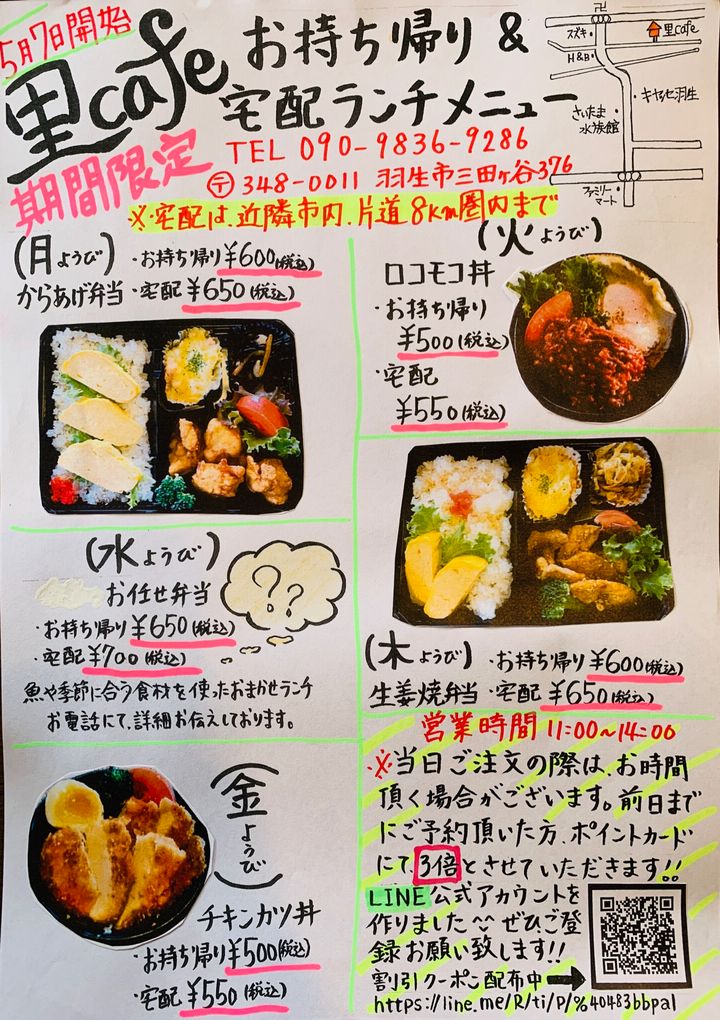 5月7日開始
里cafe
お持ち帰り &
宅配ランチメニュー
期間限定
TEL 090-9836-9286
〒348-0011 羽生市三田ヶ谷376
※・宅配は、近隣市内、片道8km圏内まで
卍
スズキ・
里cafe
H&B・
・キヤッセ羽生
さいたま
水族館
ファミリー
マート
(月ようび)
・お持ち帰り¥600(税込)
からあげ弁当 ・宅配¥650(税込)
(火ようび)
ロコモコ丼
・お持ち帰り
¥500(税込)
・宅配
¥550(税込)
(水ようび)
??
お任せ弁当
・お持ち帰り¥650(税込)
・宅配¥700(税込)
魚や季節に合う食材を使ったおまかせランチ
お電話にて、詳細お伝えしております。
(木ようび) ・お持ち帰り¥600(税込)
生姜焼弁当 ・宅配¥650(税込)
(金ようび)
チキンカツ丼
・お持ち帰り¥500(税込)
・宅配¥550(税込)
営業時間 11:00~14:00
※当日ご注文の際は、お時間
頂く場合がございます。前日まで
にご予約頂いた方、ポイントカード
にて3倍とさせていただきます!!
LINE公式アカウントを
作りました^^ぜひご登
録お願い致します!!
割引クーポン配布中→
https://line.me/R/ti/p/%40483bbpal